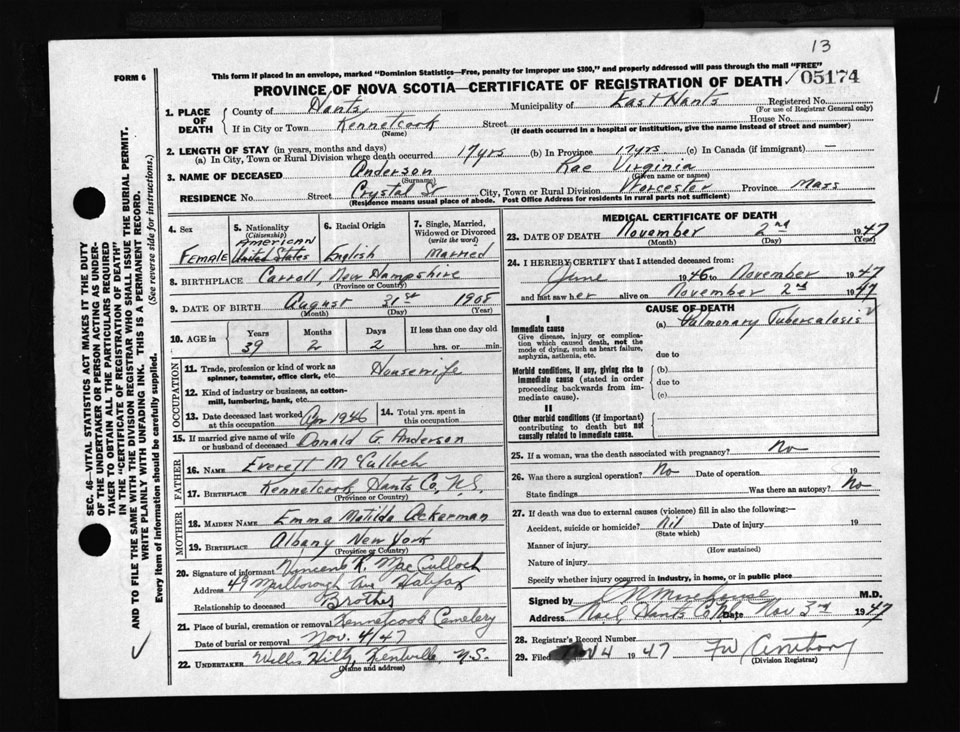 13
FORM 6
This form if placed in an envelope, marked "Dominion Statistics—Free, penalty for improper use $300," and properly addressed will pass through the mail "FREE"
PROVINCE OF NOVA SCOTIA—CERTIFICATE OF REGISTRATION OF DEATH 05174
1. PLACE OF DEATH
County of Hants Municipality of East Hants Registered No.
(For use of Registrar General only)
If in City or Town Kennetcook Street House No.
(Name) (If death occurred in a hospital or institution, give the name instead of street and number)
2. LENGTH OF STAY (in years, months and days)
(a) In City, Town or Rural Division where death occurred 17 yrs (b) In Province 17 yrs. (c) In Canada (if immigrant) —
3. NAME OF DECEASED Anderson Rae Virginia
(Surname) (Given name or names)
RESIDENCE No. Street Crystal St City, Town or Rural Division Worcester Province Mass
(Residence means usual place of abode. Post Office Address for residents in rural parts not sufficient)
4. SEX Female
5. Nationality (Citizenship) American United States
6. Racial Origin English
7. Single, Married, Widowed or Divorced (write the word) Married
8. BIRTHPLACE Carroll, New Hampshire
(Province or Country)
9. DATE OF BIRTH August 31st 1908
(Month) (Day) (Year)
10. AGE in Years Months Days If less than one day old
39 2 2 hrs. or min.
OCCUPATION
11. Trade, profession or kind of work as spinner, teamster, office clerk, etc. Housewife
12. Kind of industry or business, as cotton-mill, lumbering, bank, etc.
13. Date deceased last worked at this occupation Apr 1946
14. Total yrs. spent in this occupation
15. If married give name of wife or husband of deceased Donald G. Anderson
FATHER
16. NAME Everett McCulloch
17. BIRTHPLACE Kennetcook Hants Co, N.S.
(Province or Country)
MOTHER
18. MAIDEN NAME Emma Matilda Ackerman
19. BIRTHPLACE Albany New York
(Province or Country)
20. Signature of informant Vincent R. MacCulloch
Address 49 Ave Halifax
Relationship to deceased Brother
21. Place of burial, cremation or removal Kennetcook Cemetery
Date of burial or removal Nov. 4/47
22. UNDERTAKER Hiltz, Kentville, N.S.
(Name and address)
MEDICAL CERTIFICATE OF DEATH
23. DATE OF DEATH November 2nd 1947
(Month) (Day) (Year)
24. I HEREBY CERTIFY that I attended deceased from:
June 1946 to November 1947
and last saw her alive on November 2nd 1947
CAUSE OF DEATH
I
Immediate cause
Give disease, injury or complication which caused death, not the mode of dying, such as heart failure, asphyxia, asthenia, etc.
(a) Pulmonary Tuberculosis
due to
Morbid conditions, if any, giving rise to immediate cause (stated in order proceeding backwards from immediate cause)
(b)
due to
(c)
II
Other morbid conditions (if important) contributing to death but not causally related to immediate cause.
25. If a woman, was the death associated with pregnancy? No
26. Was there a surgical operation? No Date of operation 19
State findings Was there an autopsy? No
27. If death was due to external causes (violence) fill in also the following:—
Accident, suicide or homicide? nil Date of injury 19
(State which)
Manner of injury
(How sustained)
Nature of injury
Specify whether injury occurred in industry, in home, or in public place
Signed by M.D.
Address Noel, Hants Co Date Nov 3rd 1947
28. Registrar's Record Number
29. Filed Nov 4 1947
(Division Registrar)
SEC. 46—VITAL STATISTICS ACT MAKES IT THE DUTY
OF THE UNDERTAKER OR PERSON ACTING AS UNDER-
TAKER TO OBTAIN ALL THE PARTICULARS REQUIRED
IN THE "CERTIFICATE OF REGISTRATION OF DEATH"
AND TO FILE THE SAME WITH THE DIVISION REGISTRAR WHO SHALL ISSUE THE BURIAL PERMIT.
WRITE PLAINLY WITH UNFADING INK. THIS IS A PERMANENT RECORD.
Every item of information should be carefully supplied. (See reverse side for instructions.)